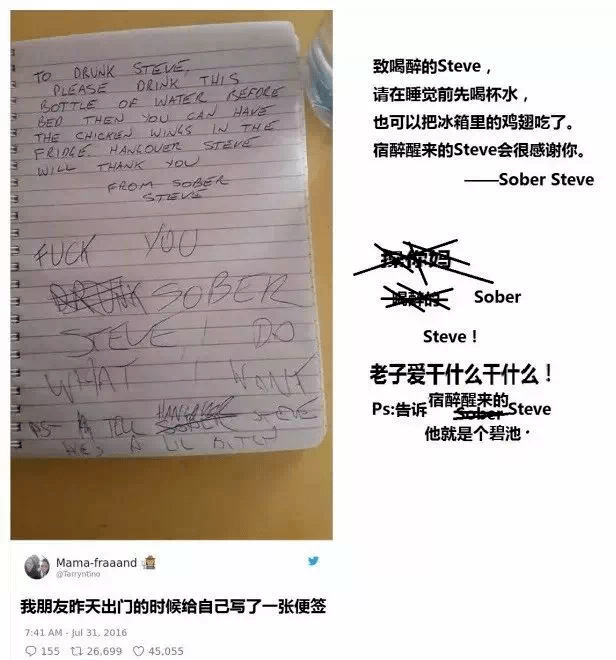 TO DRUNK STEVE,
PLEASE DRINK THIS
BOTTLE OF WATER BEFORE
BED THEN YOU CAN HAVE
THE CHICKEN WINGS IN THE
FRIDGE. HANGOVER STEVE
WILL THANK YOU
FROM SOBER
STEVE
FUCK YOU
DRUNK SOBER
STEVE I DO
WHAT I WANT
HANGOVER
PS TELL SOBER STEVE
HE'S A LIL BITCH
致喝醉的Steve，
请在睡觉前先喝杯水，
也可以把冰箱里的鸡翅吃了。
宿醉醒来的Steve会很感谢你。
——Sober Steve
操你妈
喝醉的 Sober
Steve！
老子爱干什么干什么！
宿醉醒来的
Ps:告诉Sober Steve
他就是个碧池·
Mama-fraaand
@Tarryntino
我朋友昨天出门的时候给自己写了一张便签
7:41 AM - Jul 31, 2016
155 26,699 45,055